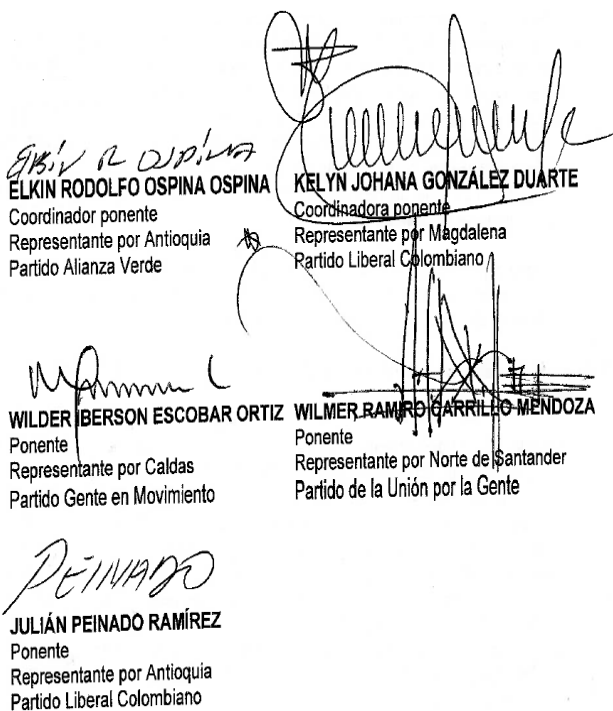 Elkin R Ospina
ELKIN RODOLFO OSPINA OSPINA
Coordinador ponente
Representante por Antioquia
Partido Alianza Verde
KELYN JOHANA GONZÁLEZ DUARTE
Coordinadora ponente
Representante por Magdalena
Partido Liberal Colombiano
WILDER IBERSON ESCOBAR ORTIZ
Ponente
Representante por Caldas
Partido Gente en Movimiento
WILMER RAMIRO CARRILLO MENDOZA
Ponente
Representante por Norte de Santander
Partido de la Unión por la Gente
PEINADO
JULIÁN PEINADO RAMÍREZ
Ponente
Representante por Antioquia
Partido Liberal Colombiano